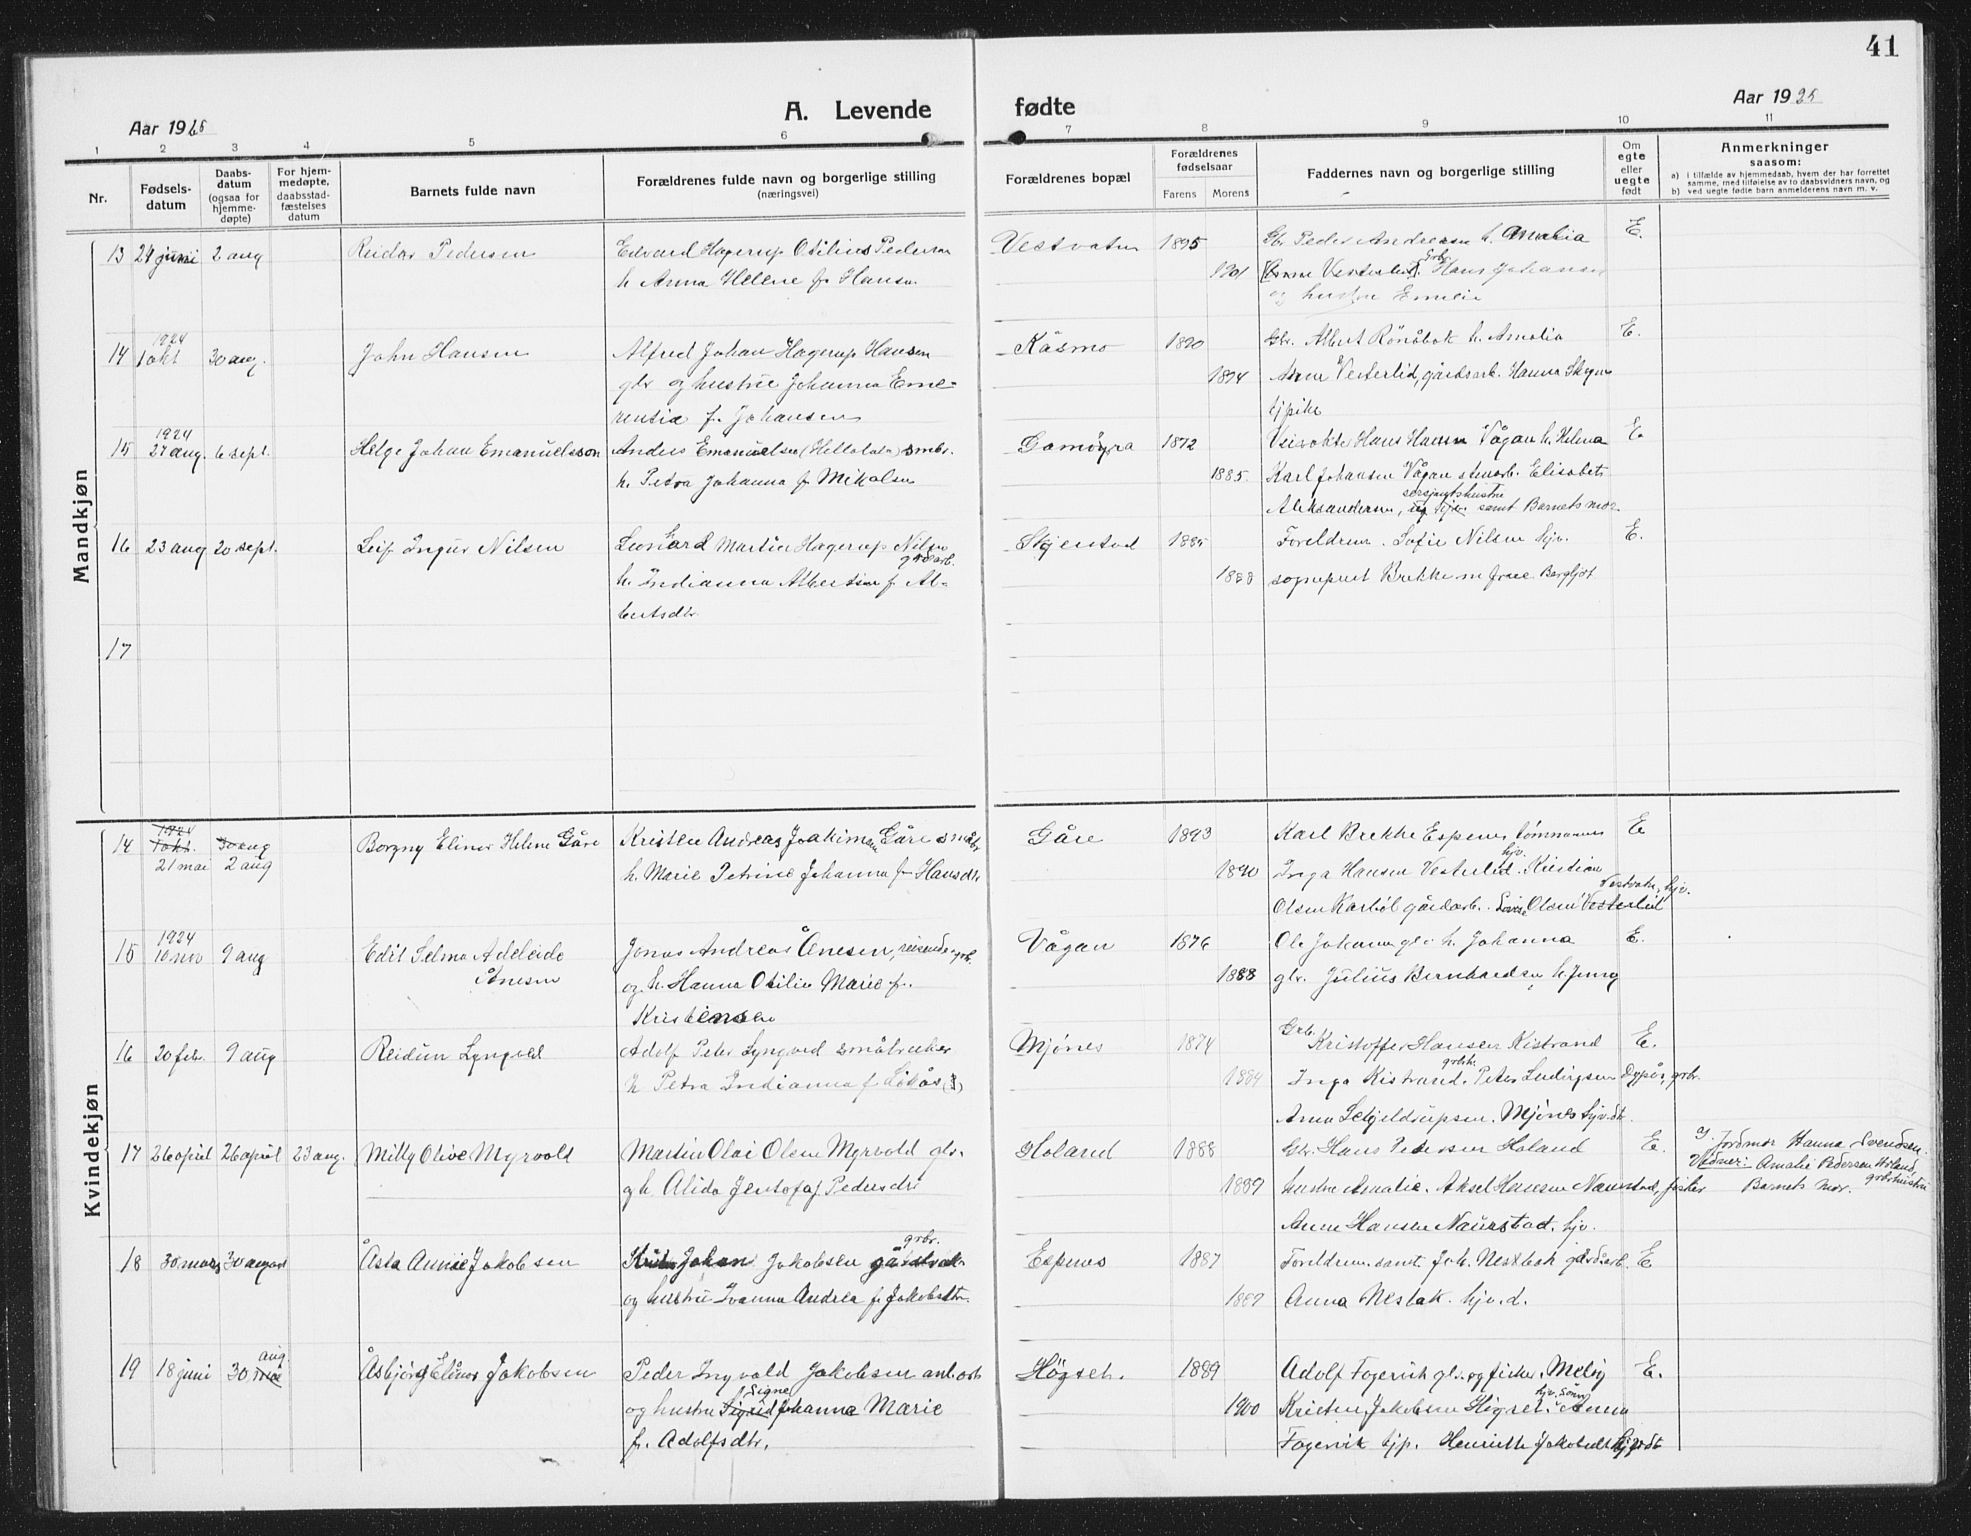 41
Aar 1925
A. Levende fødte
Aar 1925
1 2 3 4 5 6 7 8 9 10 11
Nr.
Fødsels-
datum
Daabs-
datum
(ogsaa for
hjemme-
døpte)
For hjem-
medøpte,
daabsstad-
fæstelses
datum
Barnets fulde navn
Forældrenes fulde navn og borgerlige stilling
(næringsvei)
Forældrenes bopæl
Forældrenes
fødselsaar
Farens Morens
Faddernes navn og borgerlige stilling
Om
egte
eller
uegte
født
Anmerkninger
saasom:
a) i tilfælde av hjemmedaab, hvem der har forrettet
samme, med tilføielse av to daabsvidners navn, og
b) ved uegte fødte barn anmelderens navn m. v.
Mandkjøn
13 24 juni 2 aug Reidar Pedersen Edvard Hagerup Otilius Pedersen Vestvatn 1895 Gbr. Peder Andreasen h. Amalia E.
h. Anna Helene f. Hansen 1901 Vesterlid. Gbr. Hans Johansen
og hustru Emelie
1924
14 1 okt 30 aug. John Hansen Alfred Johan Hagerup Hansen Kåsmo 1890 Gbr. Albert Rönåbak h. Amalia E.
gbr og hustrue Johanna Eme- 1894 Vesterlid, gårdsarb. Hanna
rentia f. Johansen tjpike
1924
15 27 aug. 6 sept. Helge Johan Emanuelsson Anders Emanuelsen smbr. Gamöyra 1872 Hans Hansen Vågan h. Helena E
h. Petra Johanna f. Mikalsen 1885. Karl Johansen Vågan stenarb. Elisabet
Aleksandersen, sersjantshustrue samt Barnets mor.
16 23 aug 20 sept. Leif Ingvr Nilsen Leonhard Martin Hagerup Nilsen Skjenstad 1885 Foreldrene. Sofie Nilsen hjv. E.
gårdarb.
h. Indianna Albertsen f. Al- 1888 sogneprest Brekke m frue Bergljot
bertsdtr.
17
Kvindekjøn
1924
1 okt. 30 aug
14 21 mai 2 aug Borgny Elinor Helene Gåre Kristen Andreas Joakimsen Gåre småbr Gåre 1893 Karl Brekke Espenes tömmermn E
h. Marie Petrine Johanna f. Hansdtr. 1890 Inga Hansen Vesterlid hjv. Kristian
Olsen Karböl gårdarb. Olsen Vesterlid Vestvatn, hjv.
1924
15 10 nov 9 aug Edit Selma Adeleide Jonas Andreas Ånesen, reisende Vågan 1876 Ole Johansen gbr h. Johanna E.
Ånesen og h. Hanna Otilie Marie f. 1888 gbr. Julius Bernhardsen h. Jenny
Kristensen
16 20 febr. 9 aug Reidun Lyngved Adolf Peter Lyngved småbruker Mjönes 1874 Grb. Kristoffer Hansen Kistrand E.
h Petra Indianna f. Lökås 1884 Inga Kistrand, Peter Ludvigsen Dypås, grbr.
Anna Schjeldrupsen. Mjönes hjv.dtr
17 26 april 26 april 23 aug. Milly Olive Myrvold Martin Olai Olsen Myrvold gbr. Holand 1888 Gbr. Hans Pedersen Holand E. a) Jordmor Hanna Svendsen.
og h. Alida Jentofa f Pedersdtr 1889 hustru Amalie. Aksel Hansen Naurstad, fisker Vidner: Amalie Pedersen Holand, grbrhustru
Anne Hansen Naurstad, hjv. Barnets mor.
18 30 mars 30 august Åsta Annie Jakobsen Johan Jakobsen grbr. Espenes 1887 Foreldrene samt Joh. Nestbak gårdarb. E
og hustru Ivanna Andrea f. Jakobsdtr. 1889 Anna Nesbak. hjv.d.
19 18 juni 30 aug Åsbjörg Elinor Jakobsen Peder Ingvald Jakobsen Högset. 1889 Adolf Fagervik gbr. og fisker. E.
og hustru Signe Johanna Marie 1900 Kristen Jakobsen Högset. Anna
f. Adolfsdtr. Fagervik tjp. Henriette